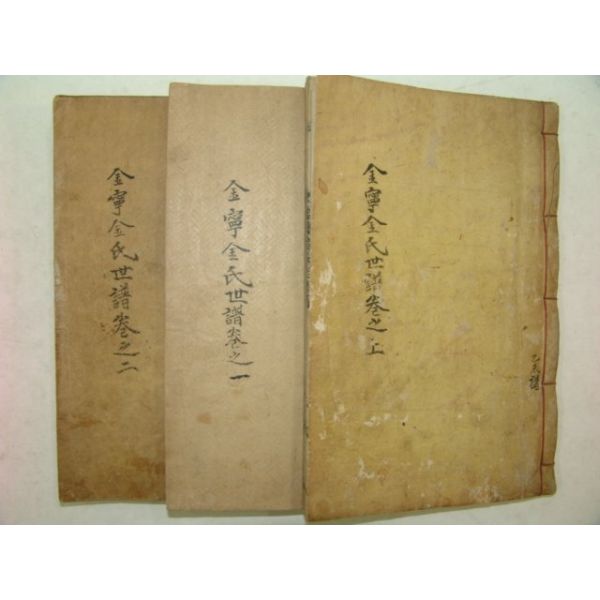 金寧金氏世譜卷之上
金寧金氏世譜卷之一
金寧金氏世譜卷之二